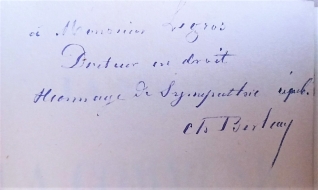 à Monsieur Legros
Docteur en droit
Hommage de Sympathie répub.
Ch